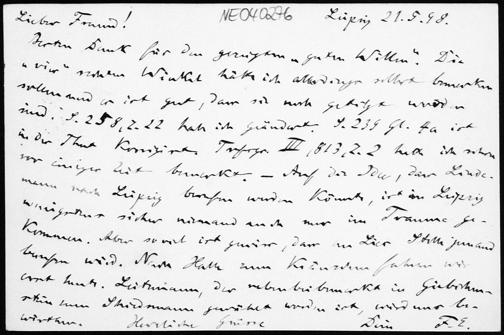 Lieber Freund!
NE040276
Leipzig 21.5.98.
Besten Dank für den gezeigten "guten Willen". Die
"vier" rechten Winkel hätte ich allerdings selbst bemerken
sollen und es ist gut, dass sie noch getilgt werden
sind. S. 258, Z. 22 hab ich geändert. S. 239 Gl. 4a ist
in der That Korrigirt. III, 813, Z. 2 hatte ich schon
vor einiger Zeit bemerkt. — Auf die Idee, dass Linde-
mann nach Leipzig berufen werden könnte, ist in Leipzig
wenigstens sicher niemand auch nur im Traume ge-
kommen. Aber so viel ist gewiss, dass an Lies Stelle jemand
berufen wird. Nach Halle zum Kränzchen fahren wir
erst heute. der in Giebichen-
stein zum gewählt worden ist, wird uns be-
wirthen. Herzliche Grüsse Dein F. E.